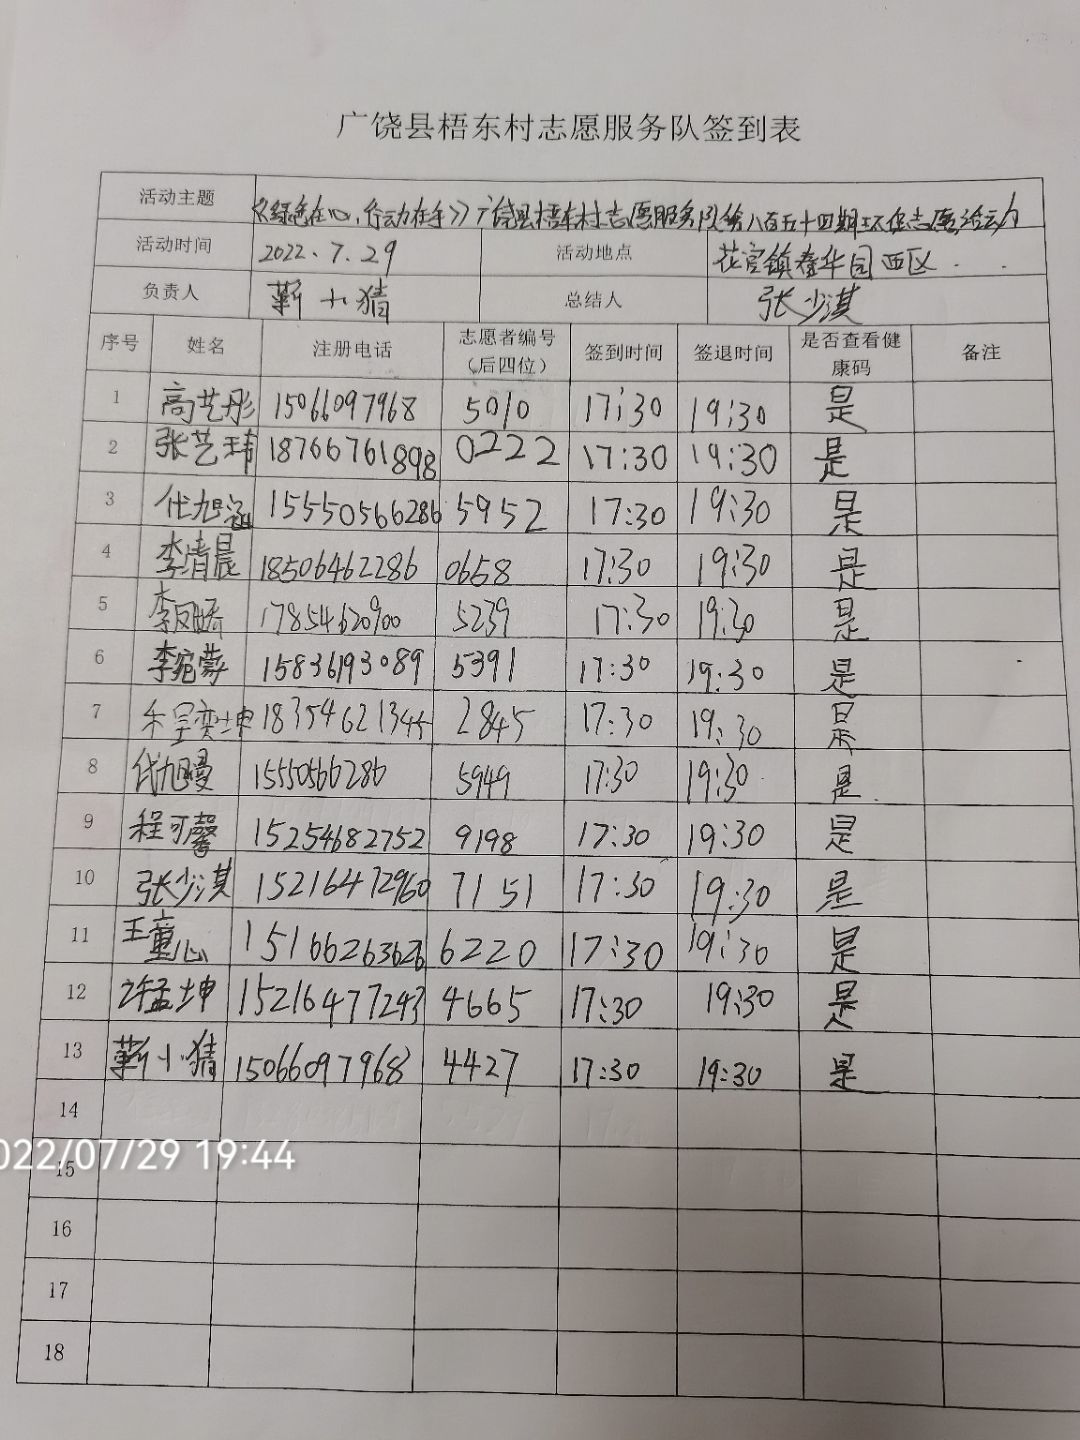 广饶县梧东村志愿服务队签到表
活动主题 《绿色在心,行动在手》广饶县梧东村志愿服务队第八百五十四期环保志愿活动
活动时间 2022.7.29 活动地点 花官镇春华园西区
负责人 靳小猜 总结人 张少淇
序号 姓名 注册电话 志愿者编号(后四位) 签到时间 签退时间 是否查看健康码 备注
1 高艺彤 15066097968 5010 17:30 19:30 是
2 张艺玮 18766761898 0222 17:30 19:30 是
3 代旭涵 15550566286 5952 17:30 19:30 是
4 李清晨 18506462286 0658 17:30 19:30 是
5 17854620900 5239 17:30 19:30 是
6 李宛蒙 15836193089 5391 17:30 19:30 是
7 2845 17:30 19:30 是
8 代旭曼 15550566286 5949 17:30 19:30 是
9 程可馨 15254682752 9198 17:30 19:30 是
10 张少淇 15216472960 7151 17:30 19:30 是
11 王童心 15166263626 6220 17:30 19:30 是
12 许孟坤 15216477243 4665 17:30 19:30 是
13 靳小猜 15066097968 4427 17:30 19:30 是
14
022/07/29 19:44
15
16
17
18